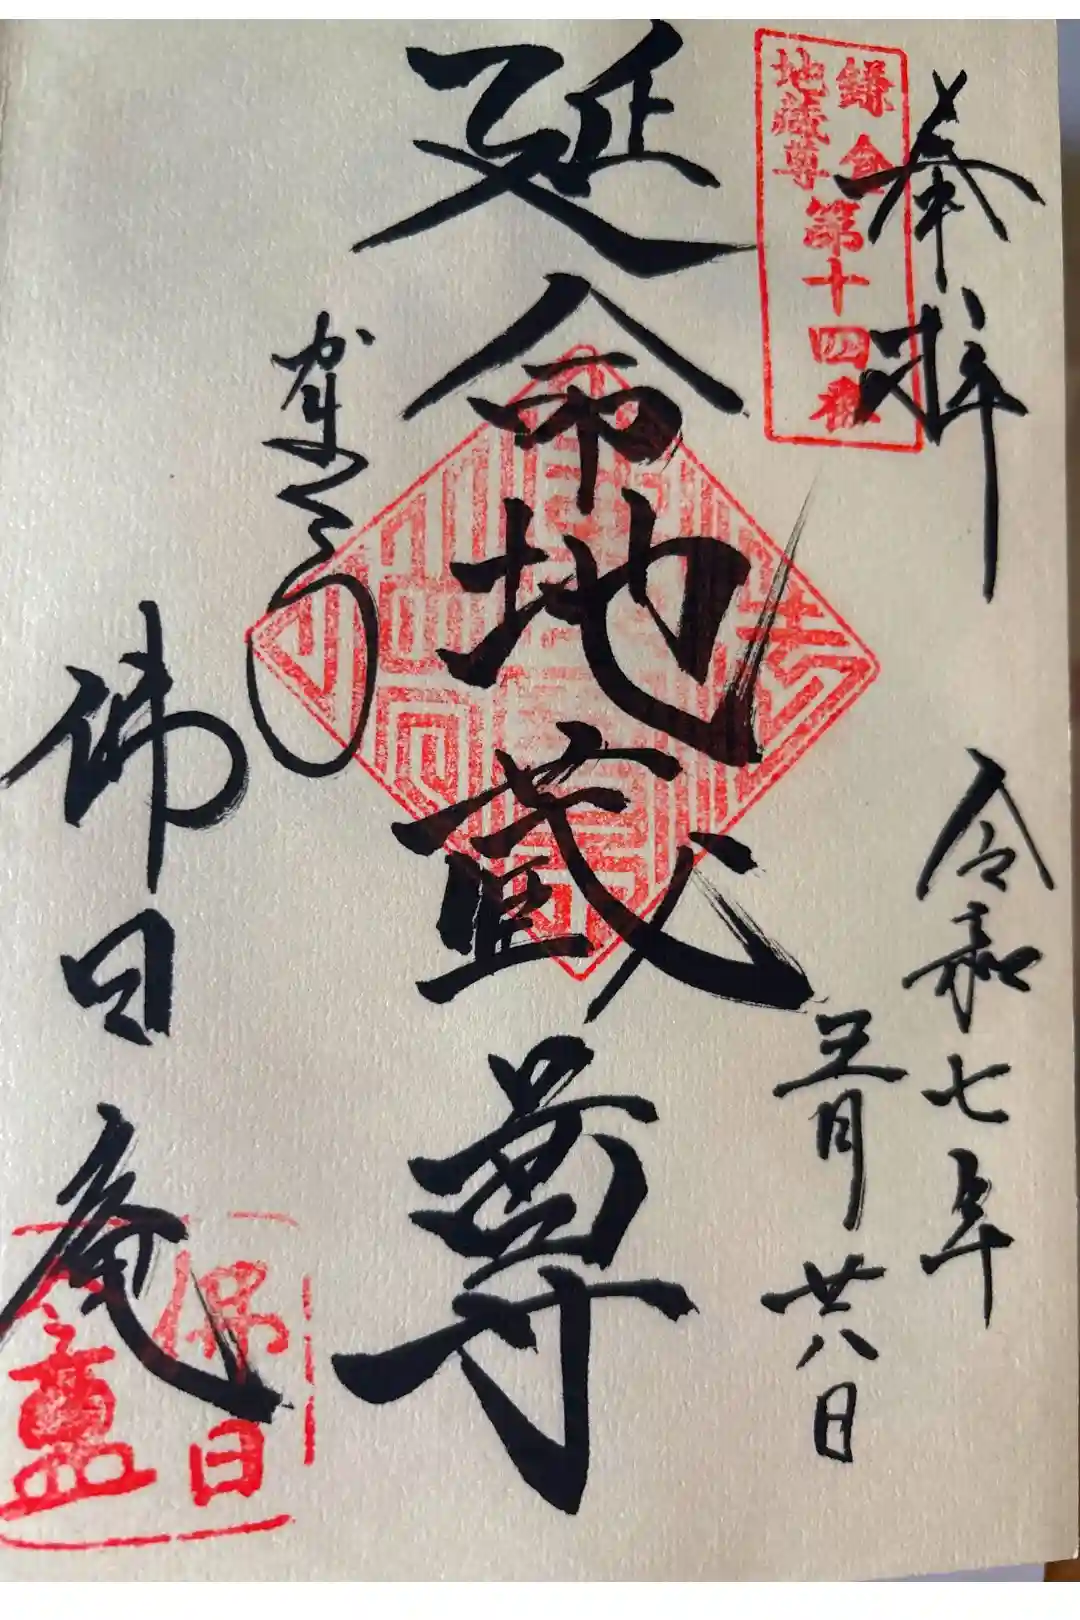 奉拝
鎌倉
地蔵尊
第十四番
令和七年
五月廿八日
延命地蔵尊
かまくら
佛日庵
佛日
盦